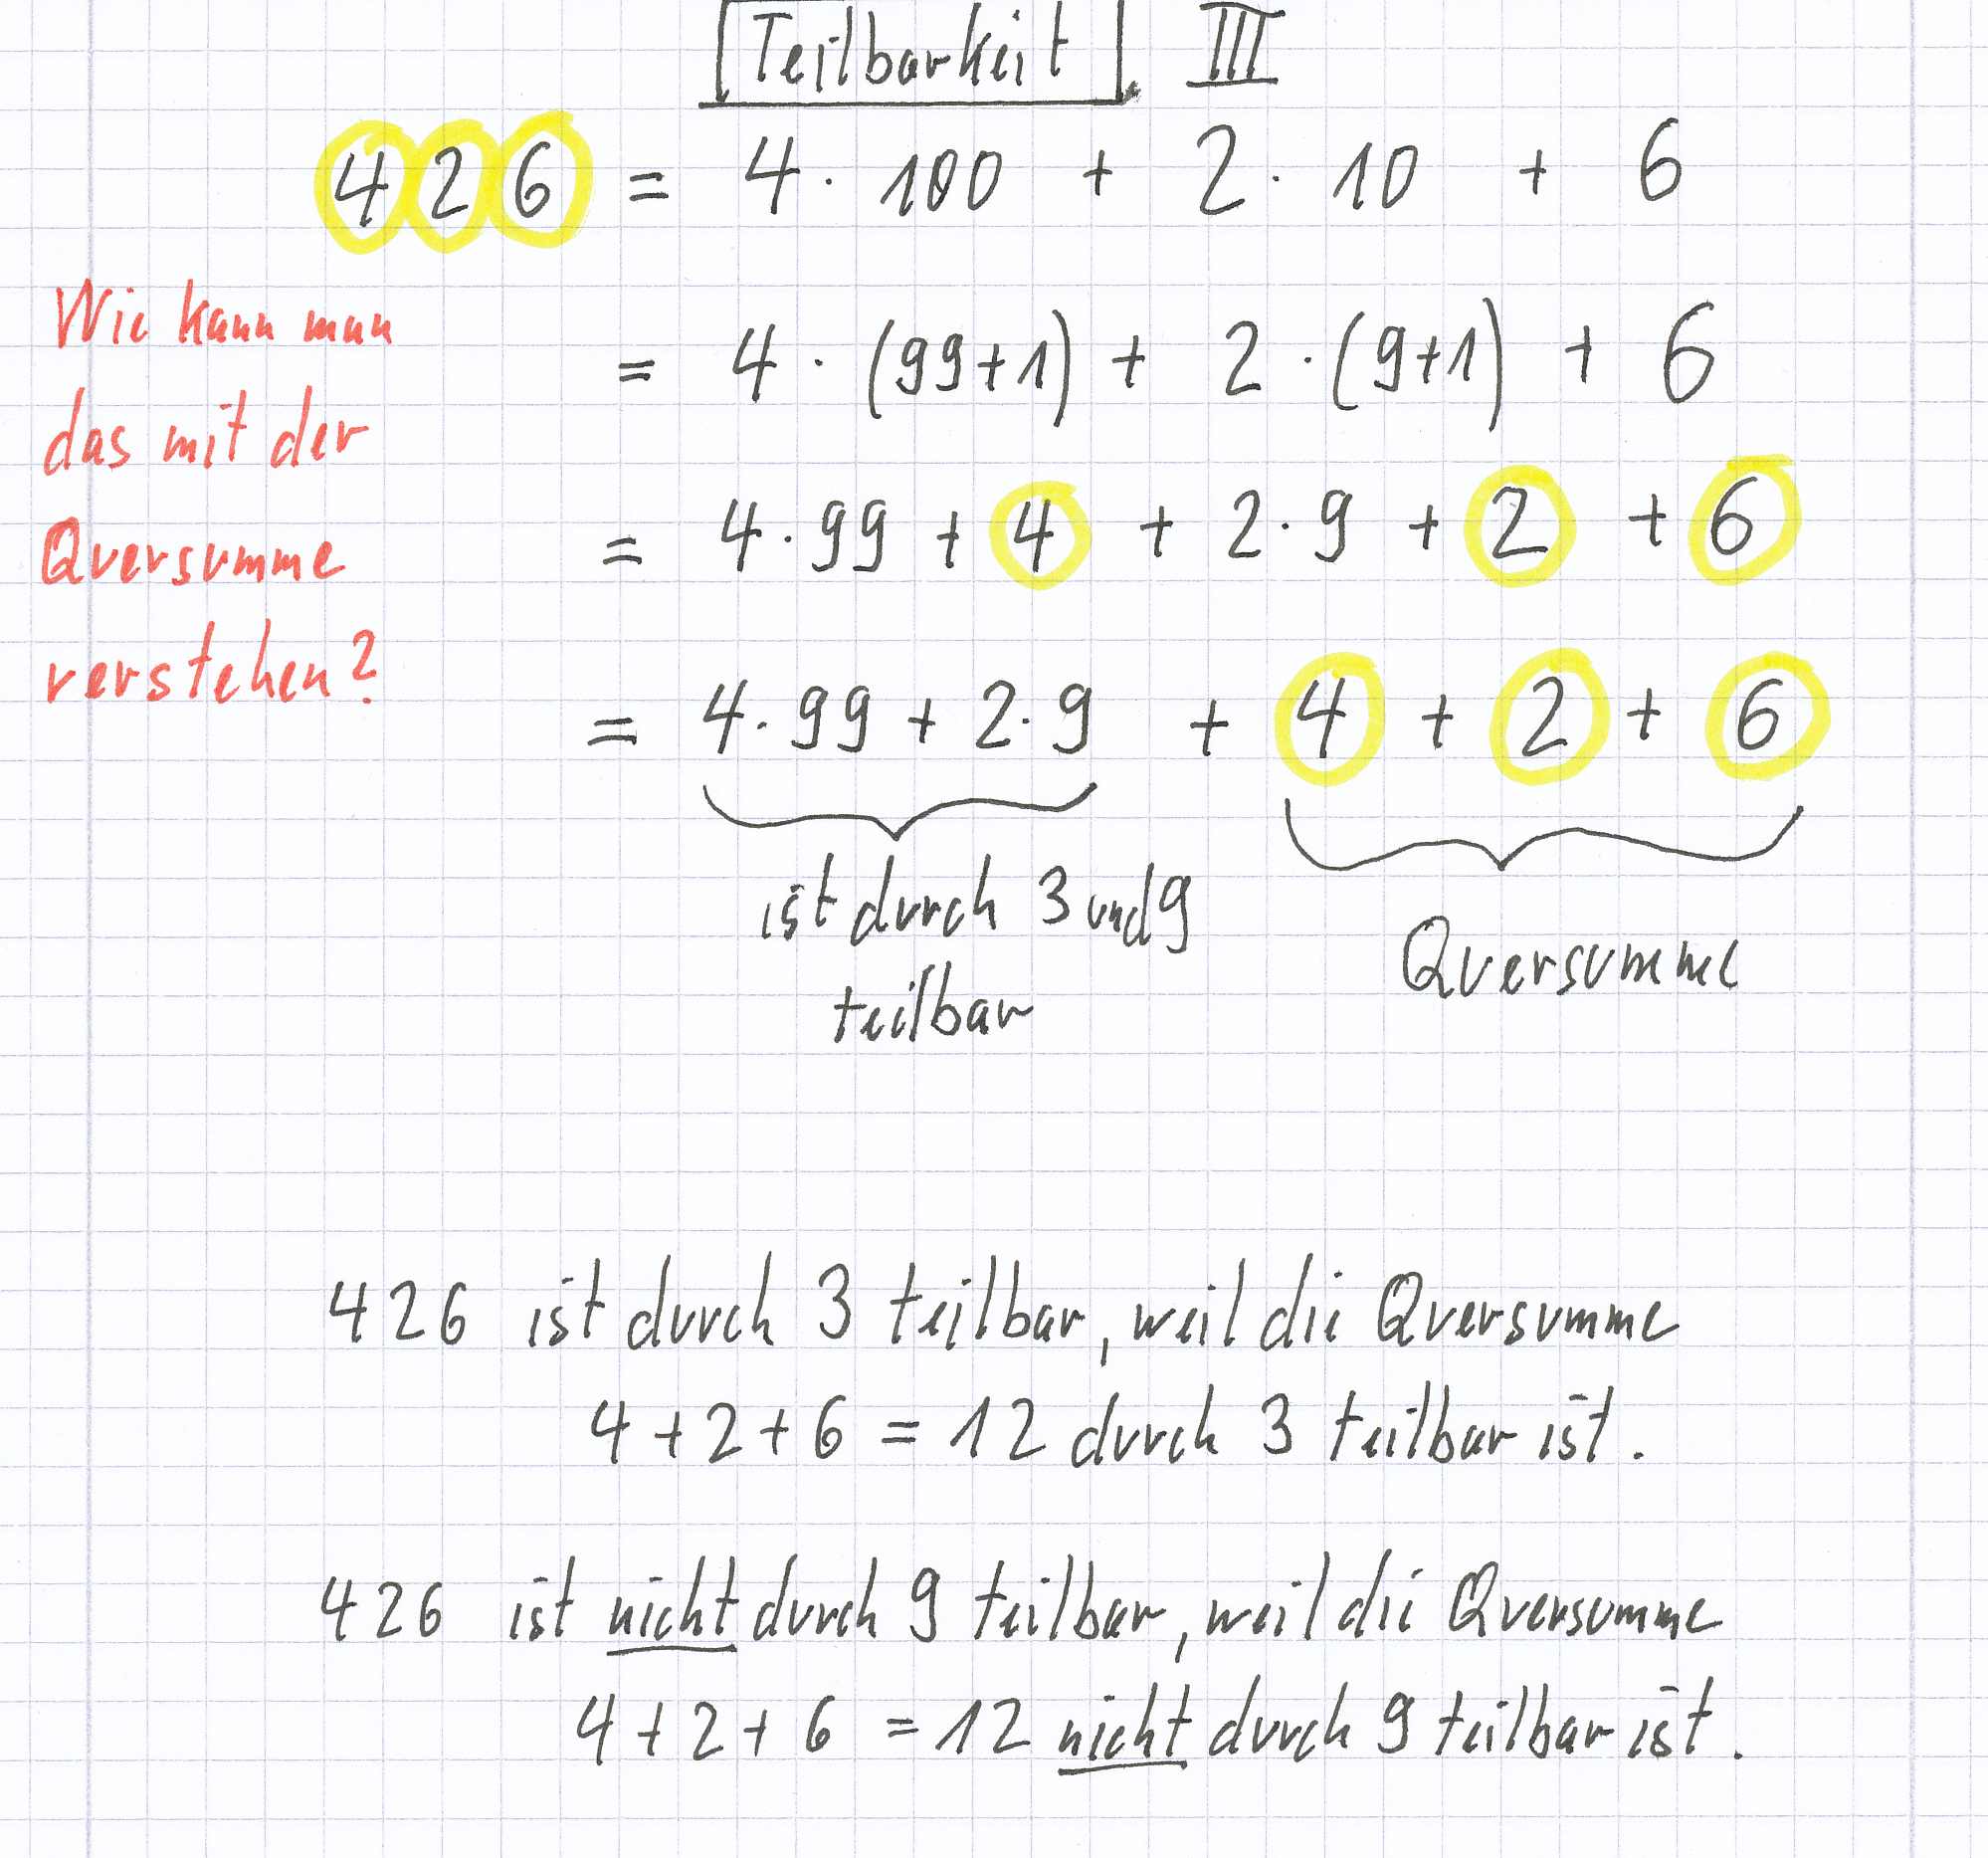 Teilbarkeit III
426 = 4 · 100 + 2 · 10 + 6
Wie kann man
das mit der
Quersumme
verstehen?
= 4 · (99+1) + 2 · (9+1) + 6
= 4 · 99 + 4 + 2 · 9 + 2 + 6
= 4 · 99 + 2 · 9 + 4 + 2 + 6
ist durch 3 und 9
teilbar
Quersumme
426 ist durch 3 teilbar, weil die Quersumme
4 + 2 + 6 = 12 durch 3 teilbar ist.
426 ist nicht durch 9 teilbar, weil die Quersumme
4 + 2 + 6 = 12 nicht durch 9 teilbar ist.